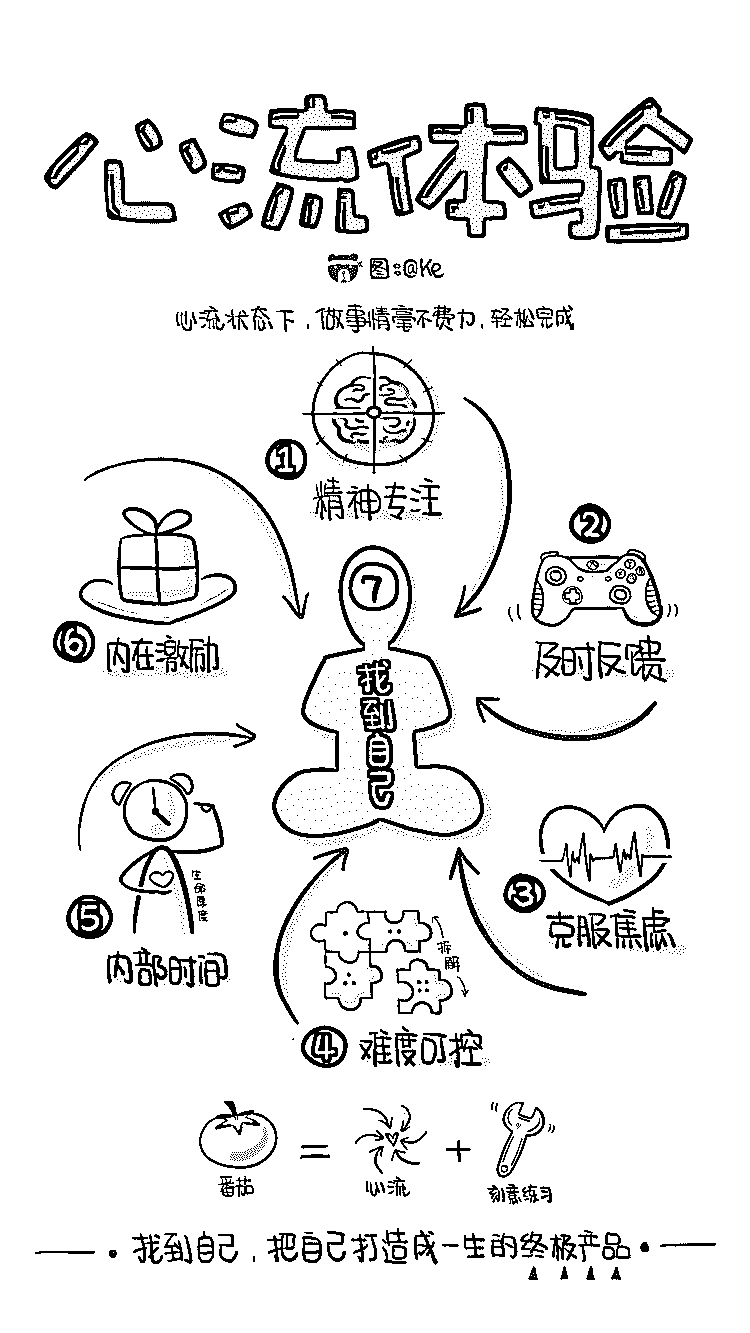 心流体验
图:@Ke
心流状态下，做事情毫不费力，轻松完成
1
精神专注
2
及时反馈
3
克服焦虑
拆解
4
难度可控
生命厚度
5
内部时间
6
内在激励
7
找到自己
番茄
=
心流
+
刻意练习
找到自己，把自己打造成一生的终极产品